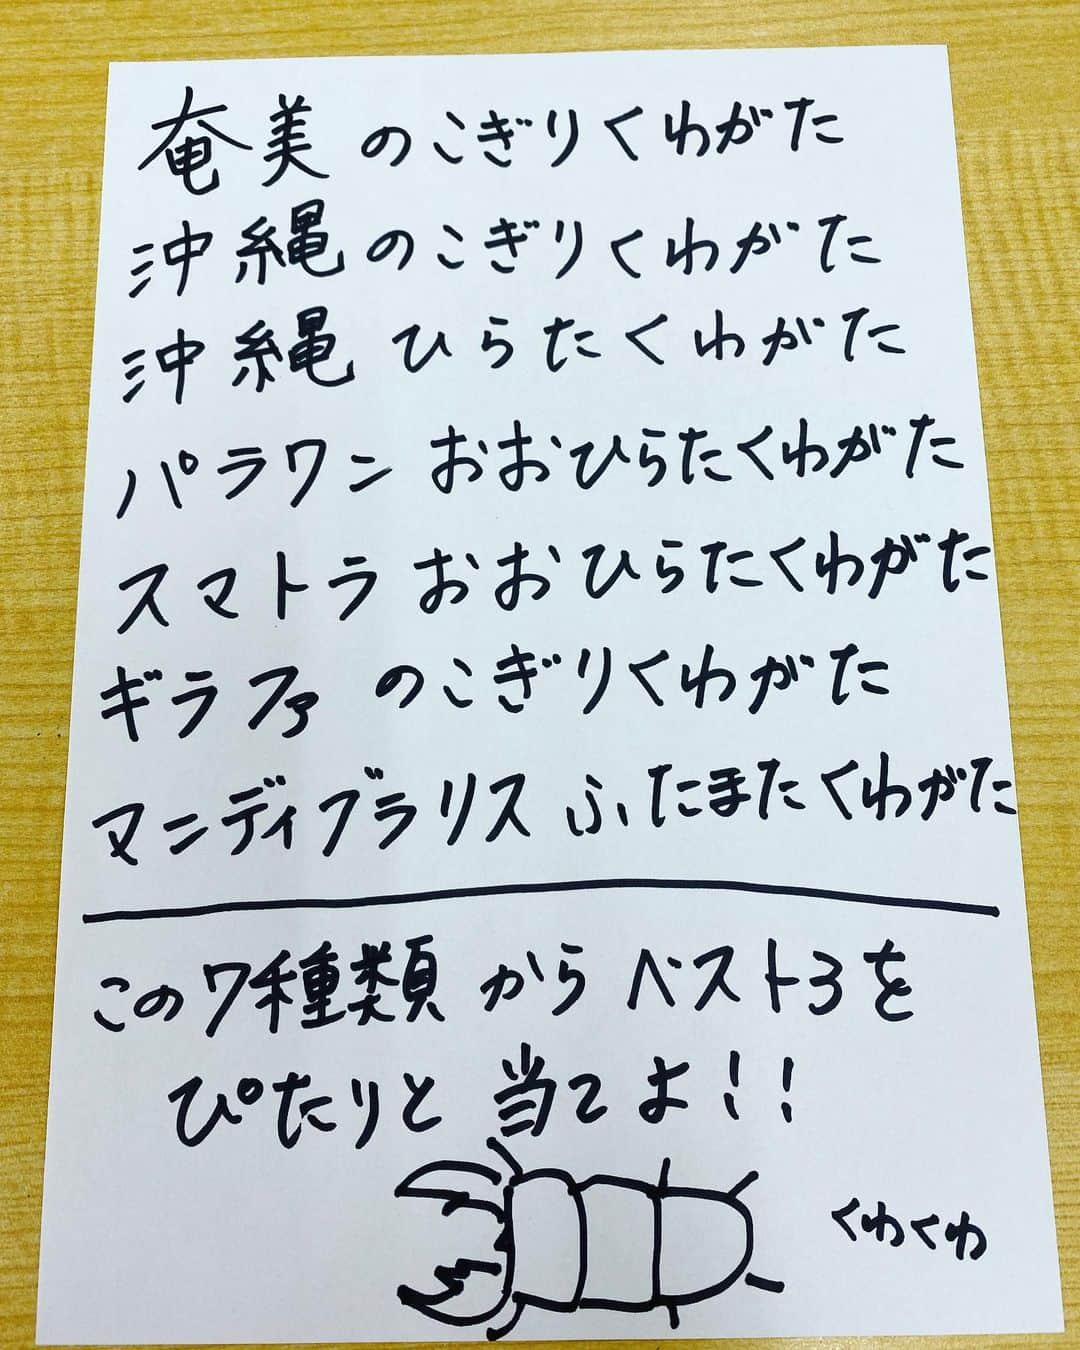 奄美のこぎりくわがた
沖縄のこぎりくわがた
沖縄ひらたくわがた
パラワンおおひらたくわがた
スマトラおおひらたくわがた
ギラファのこぎりくわがた
マンディブラリスふたまたくわがた
この7種類からベスト3を
ぴたりと当てよ!!
くわくわ